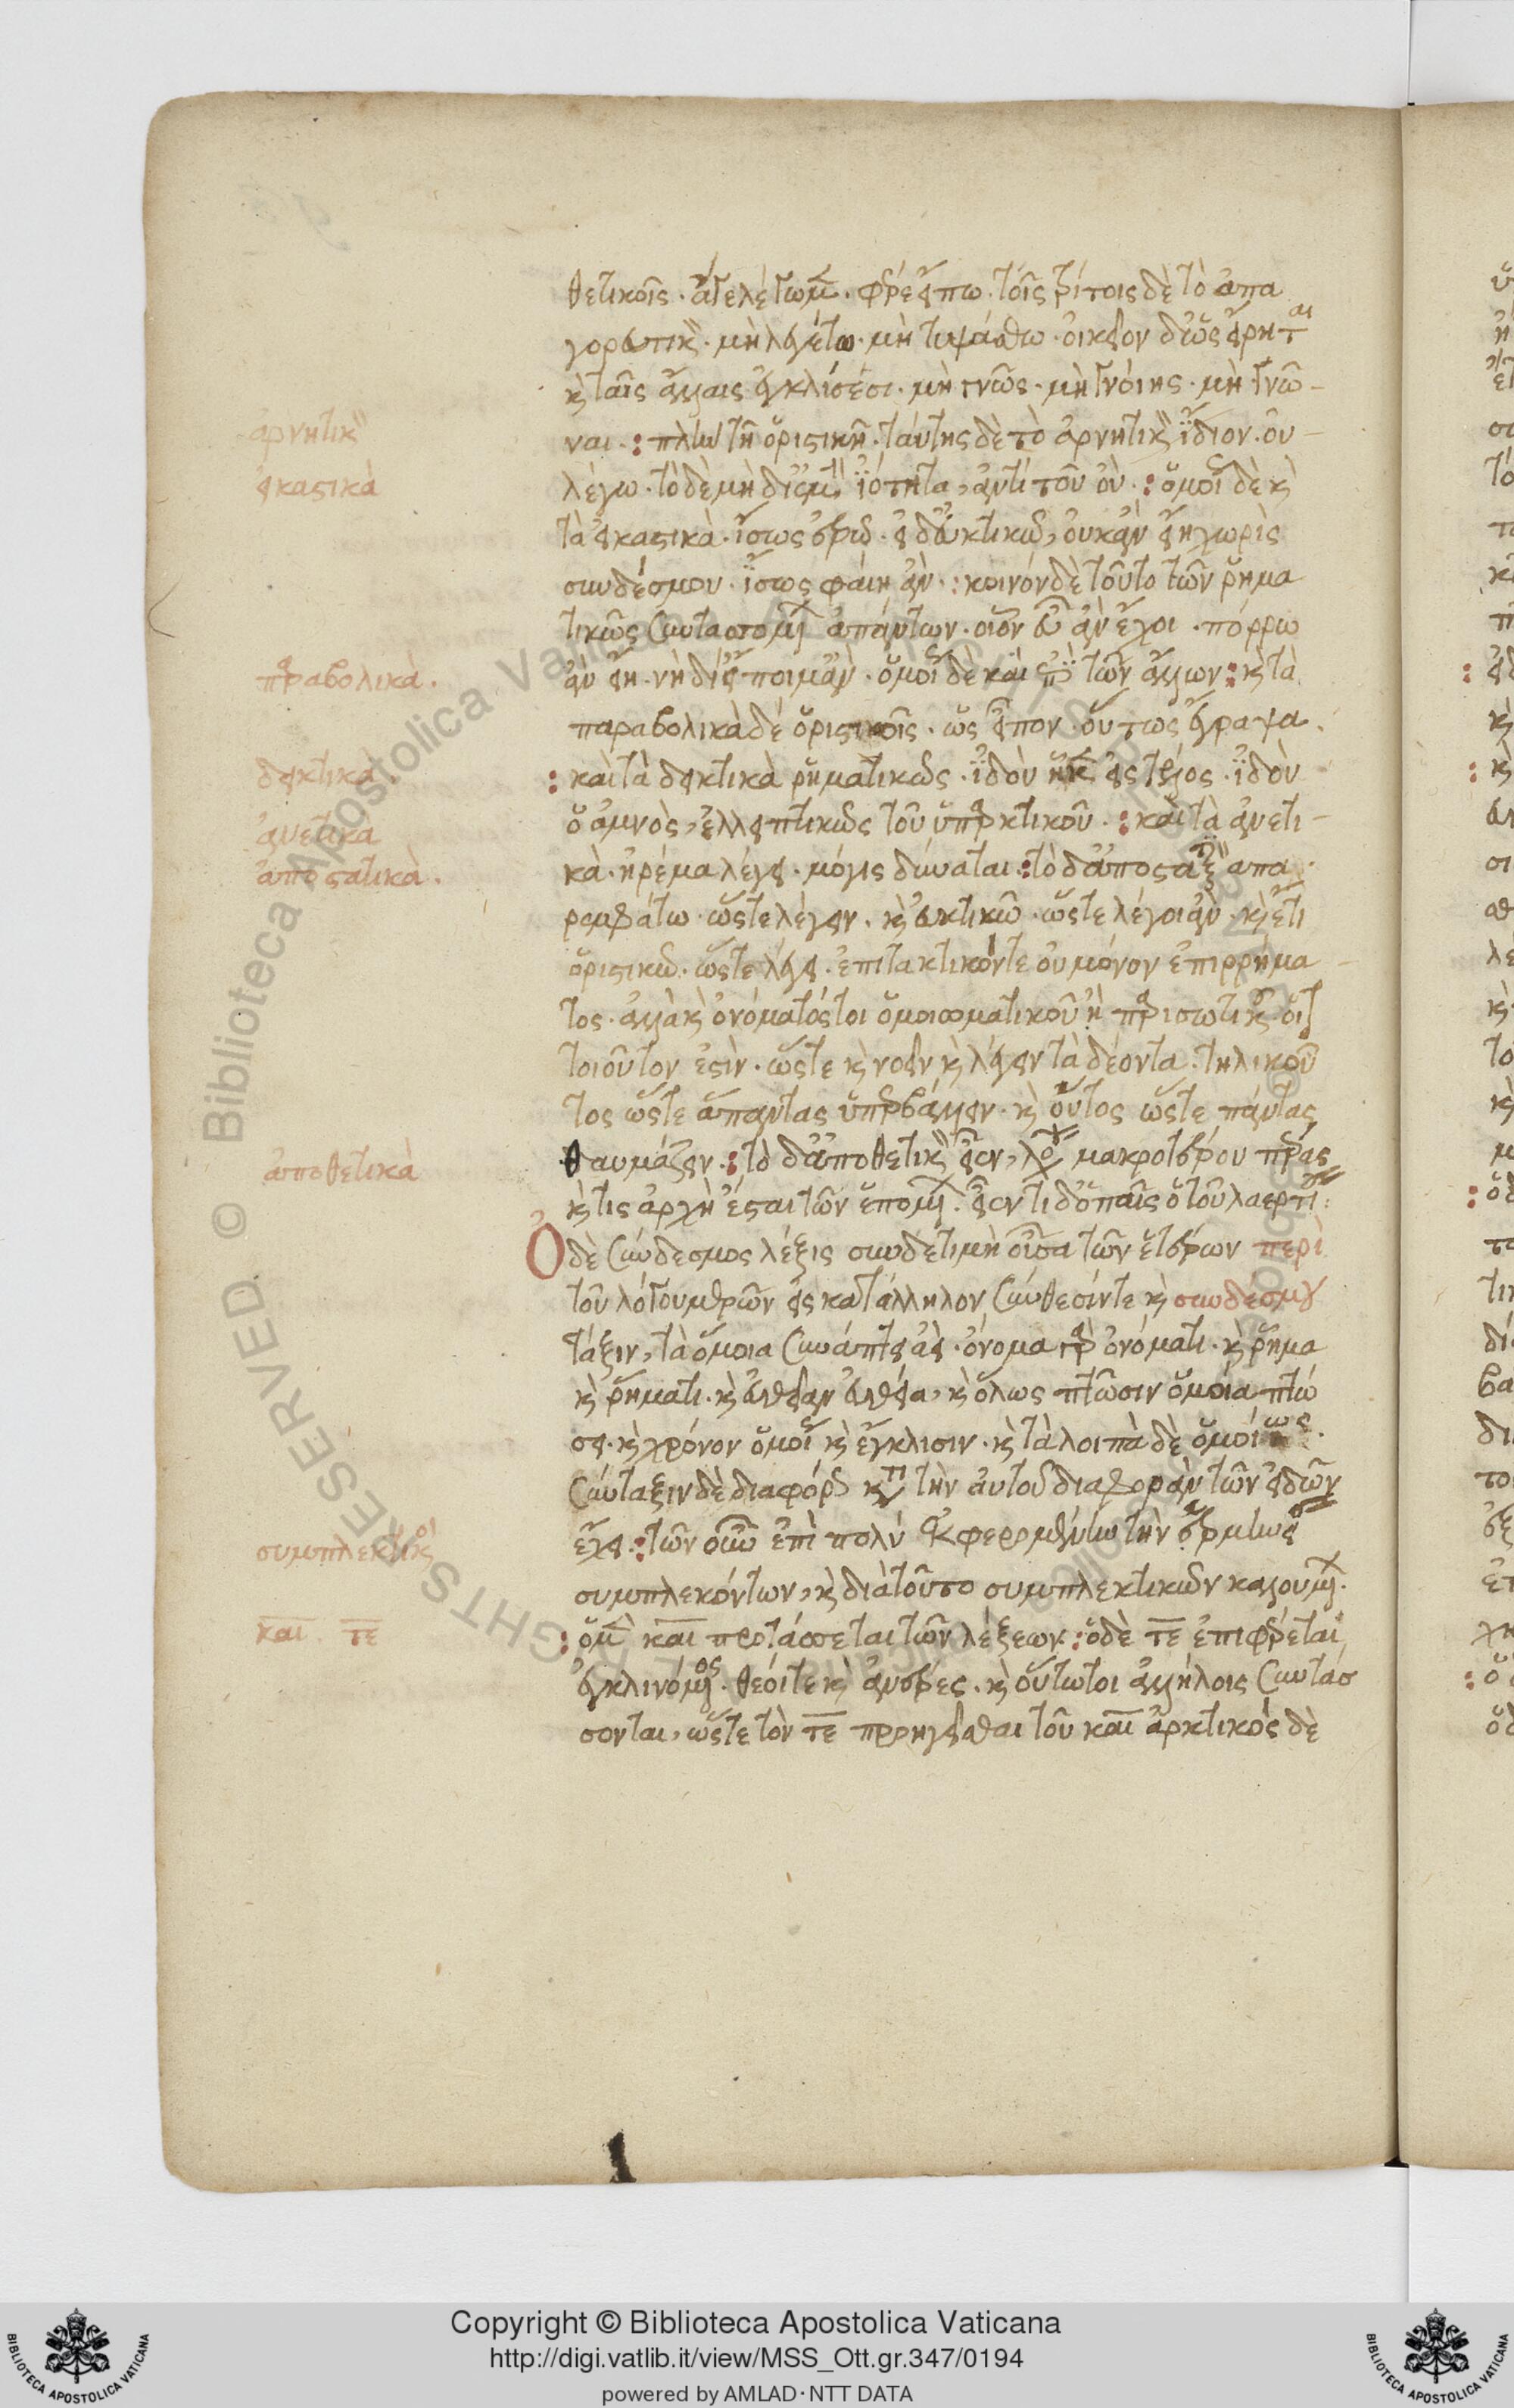 θετικοῖς. ἄγε λέγωμεν. φέρε εἴπω. τοῖς τρίτοις δὲ τὸ ἀπα
γορευτικὸν. μὴ λεγέτω. μὴ τυψάσθω. οἰκεῖον δ' ὡς εἴρηται
κ ταῖς ἄλλαις ἐγκλίσεσι. μὴ γνῶς. μὴ γνοίης. μὴ γνῶ-
ναι.: πλὴν τῆ ὁριστικῆ. ταύτης δὲ τὸ ἀρνητικὸν ἴδιον. ου-
λέγω. τὸ δὲ μὴ ἰότητα, ἀντὶ τοῦ οὐ.: ὅμοί δὲ κ
τὰ εἰκαστικὰ. ἴσως ἐρῶ. εἰ δ' εὐκτικῶ, οὐκ ἂν εἴη χωρὶς
συνδέσμου. ἴσως φαίη ἂν.: κοινὸν δὲ τοῦτο τῶν ῥημα
τικῶς συντασσομένων ἁπάντων. οἷον εὖ ἂν ἔχοι. πόρρω
ἂν εἴη. νὴ δί' εἴποιμ' ἂν. ὅμοί δὲ καὶ ἐπὶ τῶν ἄλλων: κ τὰ
παραβολικὰ δέ ὁριστικοῖς. ὡς εἶπον οὕτως ἔγραψα.
: καὶ τὰ δεικτικὰ ῥηματικῶς. ἰδοὺ ἥκει εἰς τέλος. ἰδοὺ
ὁ ἀμνὸς, ἐλλειπτικῶς τοῦ ὑπαρκτικοῦ.: καὶ τὰ ἀνετι-
κὰ. ἠρέμα λέγει. μόγις δύναται: τὸ δ' ἀποστατικὸν απα
ρεμφάτω. ὥστε λέγειν. κ εὐκτικῶ. ὥστε λέγοι ἂν. κ ἔτι
ὁριστικῶ. ὥστε λέγει. ἐπιτακτικόντε οὐ μόνον ἐπιρρήμα-
τος. ἀλλὰ κ ὀνόματός τοι ὁμοιωματικοῦ ἢ παρισωτικοῦ
τοιοῦτον ἐστὶν. ὥστε κ νοεῖν κ λέγειν τὰ δέοντα. τηλικοῦ
τος ὥστε ἅπαντας ὑπερβάλλειν. κ οὗτος ὥστε πάντας
θαυμάζειν.: τὸ δ' ἀποθετικὸν εἶεν, λόγου μακροτέρου πέρας
κ τις ἀρχὴ ἔσται τῶν ἑπομένων. εἶεν τί δ' ὁ παῖς ὁ τοῦ λαερτίου:
Ὁ δὲ σύνδεσμος λέξις συνδετικὴ οὖσα τῶν ἑτέρων περὶ
τοῦ λόγου μερῶν εἰς κατάλληλον σύνθεσίν τε κ συνδέσμου
τάξιν, τὰ ὅμοια συνάπτει ἀεὶ. ὄνομα παρ ὀνόματι. κ ῥῆμα
κ ῥήματι. κ εὐθεῖαν εὐθεία, κ ὅλως πτῶσιν ὁμοία πτώ
σει. κ χρόνον ὅμοί κ ἔγκλισιν. κ τὰ λοιπὰ δὲ ὁμοίως.
σύνταξιν δὲ διάφορον κατὰ τὴν αὐτοῦ διαφορὰν τῶν εἰδῶν
ἔχει.: τῶν οὖν ἐπὶ πολὺ ἐκφερομένην τὴν ἑρμηνείαν
συμπλεκόντων, κ διὰ τοῦτο συμπλεκτικῶν καλουμένων.
: ὁ μὲν καὶ προτάσσεται τῶν λέξεων: ὁ δὲ τε ἐπιφέρεται
ἐγκλινόμενος. θεοί τε κ ἀνέρες. κ οὕτω τοι ἀλλήλοις συντάσ
σονται, ὥστε τὸν τε προηγεῖσθαι τοῦ καὶ ἀρκτικὸς δὲ
ἀρνητικὸν
εἰκαστικὰ
παραβολικὰ.
δεικτικὰ.
ἀνετικὰ
ἀποστατικὰ.
ἀποθετικὰ
συμπλεκτικοὶ
καὶ τε
© Biblioteca Apostolica Vaticana
RIGHTS RESERVED
Copyright © Biblioteca Apostolica Vaticana
http://digi.vatlib.it/view/MSS_Ott.gr.347/0194
powered by AMLAD·NTT DATA
BIBLIOTECA APOSTOLICA VATICANA
BIBLIOTECA APOSTOLICA VATICANA